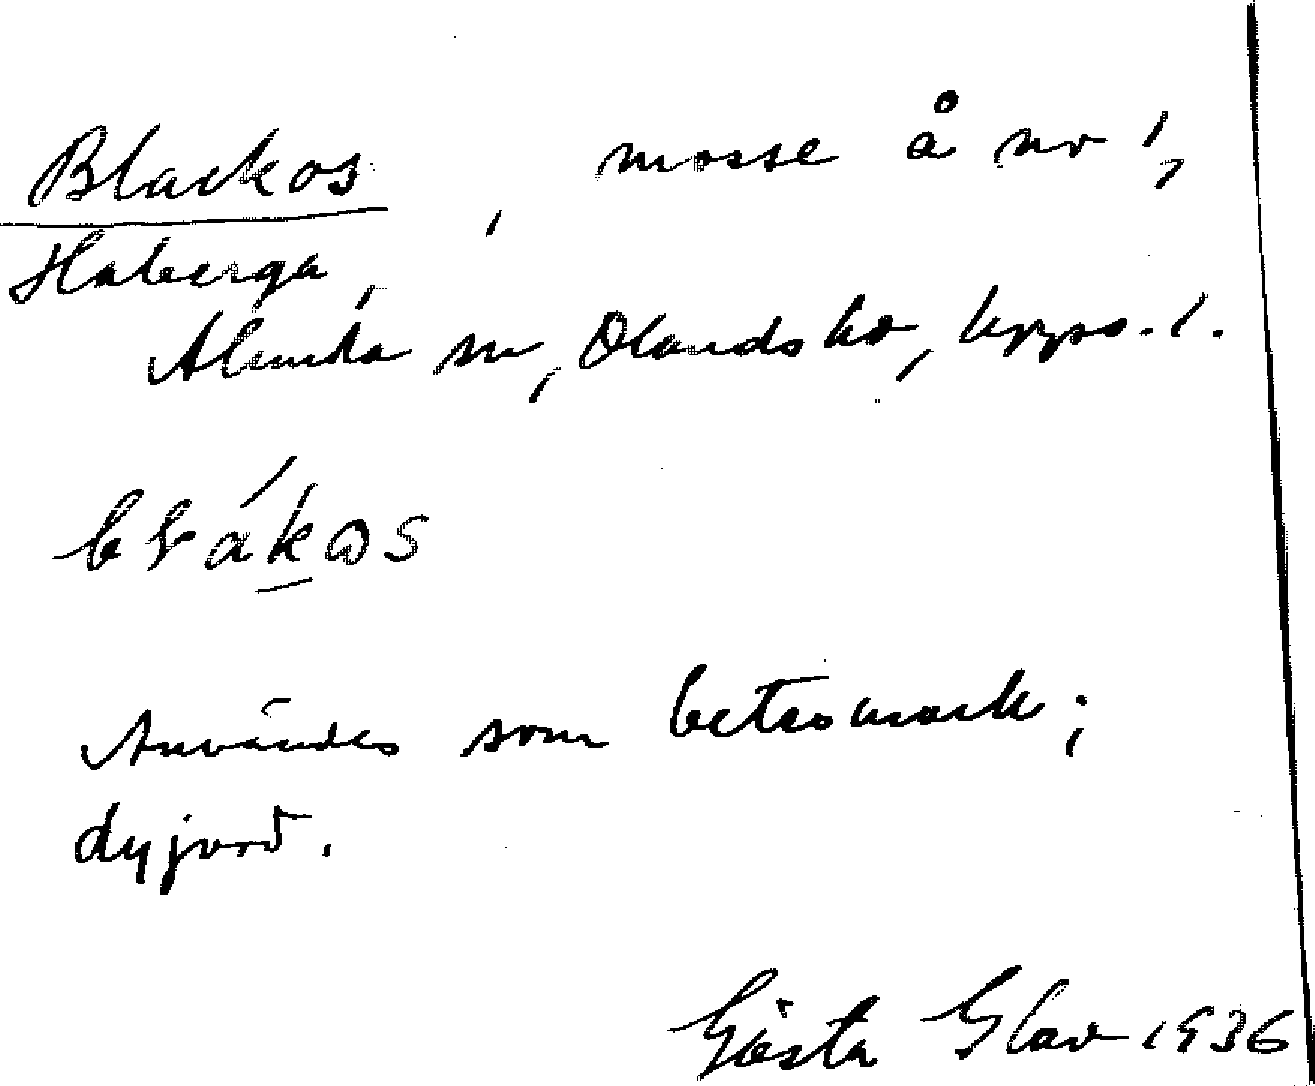 Blackos, mosse å nr 1,
Haberga,
Alunda sn, Olands hd, Upps. l.
blákos
Användes som betesmark;
dyjord.
Gösta Glav 1936